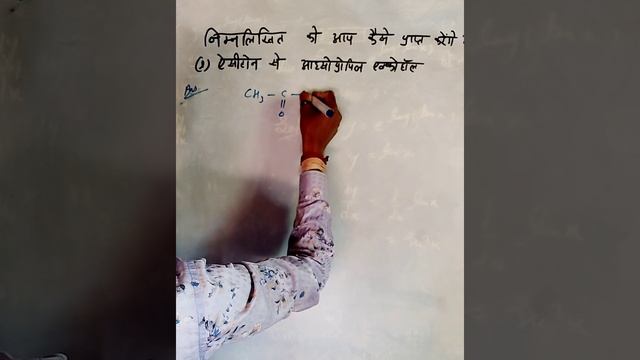 निम्नलिखित को आप कैसे प्राप्त करेंगे :
(3) ऐसीटोन से आइसोप्रोपिल एल्कोहॉल
Ans.
CH₃ – C –
||
O